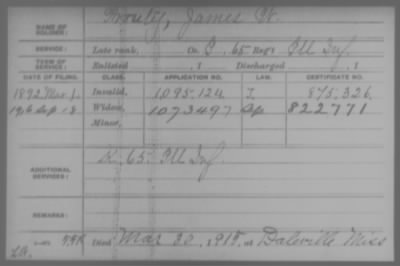 NAME OF SOLDIER: Prouty, James W.
SERVICE: Late rank, Co. C, 65 Reg't Ill Inf.
TERM OF SERVICE: Enlisted , 1 Discharged , 1
DATE OF FILING. CLASS. APPLICATION NO. LAW. CERTIFICATE NO.
1892 Mar 1. Invalid, 1.095.124 J. 875.326
1916 Sep 18 Widow, 1073497 822771
Minor,
ADDITIONAL SERVICES: K. 65 Ill Inf
REMARKS:
Died Mar 30, 1915, at Daleville Miss